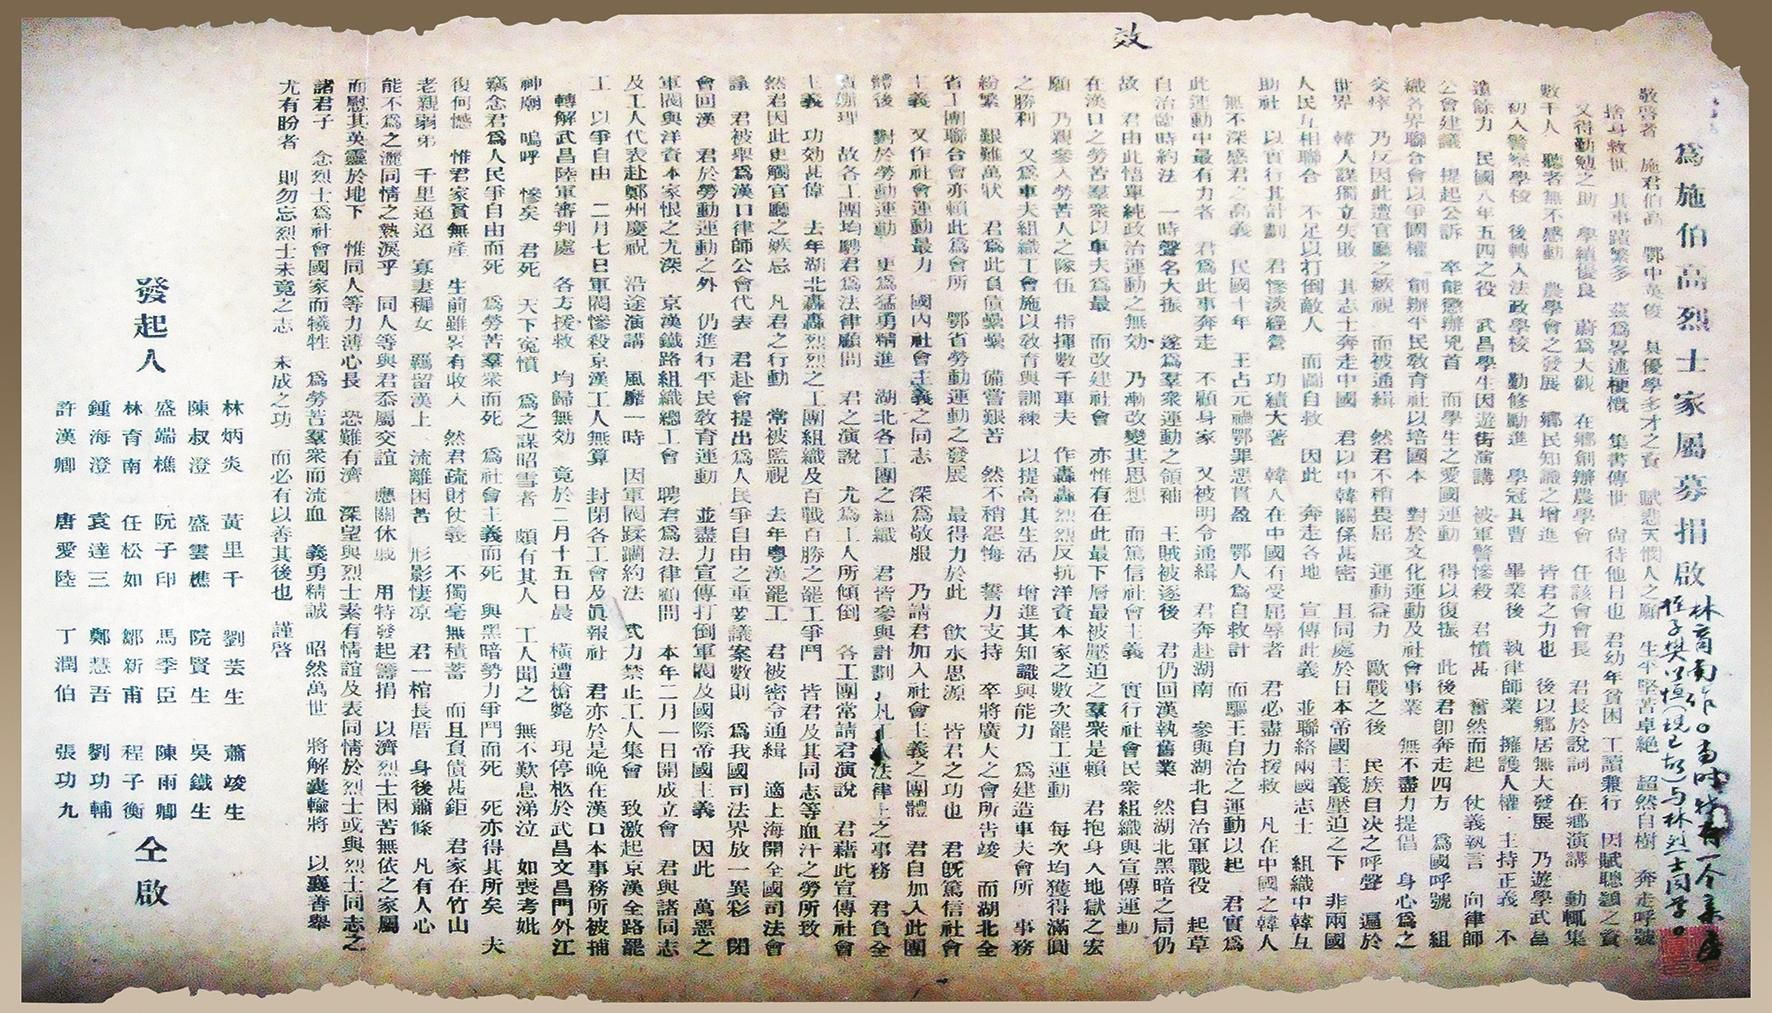 效
為施伯高烈士家屬募捐啟
敬啓者 施君伯高 鄂中英俊 具優學多才之資 賦悲天憫人之願 生平堅苦卓絕 超然自樹 奔走呼號
捨身救世 其事蹟繁多 茲爲畧述梗槪 集書傳世 尙待他日也 君幼年貧困 工讀兼行 因賦聰穎之資
又得勤勉之助 學績優良 蔚爲大觀 在鄉創辦農學會 任該會會長 君長於說詞 在鄉演講 動輒集
數千人 聽者無不感動 農學會之發展 鄉民知識之增進 皆君之力也 後以鄉居無大發展 乃遊學武昌
初入警察學校 後轉入法政學校 勤修勵進 學冠其曹 畢業後 執律師業 擁護人權 主持正義 不
遺餘力 民國八年五四之役 武昌學生因遊街演講 被軍警慘殺 君憤甚 奮然而起 仗義執言 向律師
公會建議 提起公訴 卒能懲辦兇首 而學生之愛國運動 得以復振 此後君卽奔走四方 爲國呼號 組
織各界聯合會以爭國權 創辦平民敎育社以培國本 對於文化運動及社會事業 無不盡力提倡 身心爲之
交瘁 乃反因此遭官廳之嫉視 而被通緝 然君不稍畏屈 運動益力 歐戰之後 民族自决之呼聲 遍於
世界 韓人謀獨立失敗 其志士奔走中國 君以中韓關係甚密 且同處於日本帝國主義壓迫之下 非兩國
人民互相聯合 不足以打倒敵人 而圖自救 因此 奔走各地 宣傳此義 並聯絡兩國志士 組織中韓互
助社 以實行其計劃 君慘淡經營 功績大著 韓人在中國有受屈辱者 君必盡力援救 凡在中國之韓人
無不深感君之高義 民國十年 王占元禍鄂罪惡貫盈 鄂人爲自救計 而驅王自治之運動以起 君實爲
此運動中最有力者 君爲此事奔走 不顧身家 又被明令通緝 君奔赴湖南 參與湖北自治軍戰役 起草
自治臨時約法 一時聲名大振 遂爲羣衆運動之領袖 王賊被逐後 君仍回漢執舊業 然湖北黑暗之局仍
故 君由此悟單純政治運動之無効 乃漸改變其思想 而篤信社會主義 實行社會民衆組織與宣傳運動
在漢口之勞苦羣衆以車夫爲最 而改建社會 亦惟有在此最下層最被壓迫之羣衆是賴 君抱身入地獄之宏
願 乃親參入勞苦人之隊伍 指揮數千車夫 作轟轟烈烈反抗洋資本家之數次罷工運動 每次均獲得滿圓
之勝利 又爲車夫組織工會施以敎育與訓練 以提高其生活 增進其知識與能力 爲建造車夫大會所 事務
紛繁 艱難萬狀 君爲此負債纍纍 備嘗艱苦 然不稍怨悔 誓力支持 卒將廣大之會所吿竣 而湖北全
省工團聯合會亦賴此爲會所 鄂省勞動運動之發展 最得力於此 飲水思源 皆君之功也 君旣篤信社會
主義 又作社會運動最力 國內社會主義之同志 深爲敬服 乃請君加入社會主義之團體 君自加入此團
體後 對於勞動運動 更爲猛勇精進 湖北各工團之組織 君皆參與計劃 凡工人法律上之事務 君負全
責辦理 故各工團均聘君爲法律顧問 君之演說 尤爲工人所傾倒 各工團常請君演說 君藉此宣傳社會
主義 功効甚偉 去年湖北轟轟烈烈之工團組織及百戰百勝之罷工爭鬥 皆君及其同志等血汗之勞所致
然君因此更觸官廳之嫉忌 凡君之行動 常被監視 去年粵漢罷工 君被密令通緝 適上海開全國司法會
議 君被舉爲漢口律師公會代表 君赴會提出爲人民爭自由之重要議案數則 爲我國司法界放一異彩 閉
會回漢 君於勞動運動之外 仍進行平民敎育運動 並盡力宣傳打倒軍閥及國際帝國主義 因此 萬惡之
軍閥與洋資本家恨之尤深 京漢鐵路組織總工會 聘君爲法律顧問 本年二月一日開成立會 君與諸同志
及工人代表赴鄭州慶祝 沿途演講 風靡一時 因軍閥蹂躪約法 武力禁止工人集會 致激起京漢全路罷
工 以爭自由 二月七日軍閥慘殺京漢工人無算 封閉各工會及眞報社 君亦於是晚在漢口本事務所被捕
轉解武昌陸軍審判處 各方援救 均歸無効 竟於二月十五日晨 橫遭槍斃 現停柩於武昌文昌門外江
神廟 嗚呼 慘矣 君死 天下寃憤 爲之謀昭雪者 頗有其人 工人聞之 無不歎息涕泣 如喪考妣
竊念君爲人民爭自由而死 爲勞苦羣衆而死 爲社會主義而死 與黑暗勢力爭鬥而死 死亦得其所矣 夫
復何憾 惟君家貧無產 生前雖畧有收入 然君疏財仗義 不獨毫無積蓄 而且負債甚鉅 君家在竹山
老親弱弟 千里迢迢 寡妻穉女 羈留漢上 流離困苦 形影悽凉 君一棺長厝 身後蕭條 凡有人心
能不爲之灑同情之熱淚乎 同人等與君忝屬交誼 應關休戚 用特發起籌捐 以濟烈士困苦無依之家屬
而慰其英靈於地下 惟同人等力薄心長 恐難有濟 深望與烈士素有情誼及表同情於烈士或與烈士同志之
諸君子 念烈士爲社會國家而犧牲 爲勞苦羣衆而流血 義勇精誠 昭然萬世 將解囊輸將 以襄善舉
尤有盼者 則勿忘烈士未竟之志 未成之功 而必有以善其後也 謹啓
發起人
林炳炎 黃里千 劉芸生 蕭竣生
陳叔澄 盛雲樵 院賢生 吳鐵生
盛端樵 阮子印 馬季臣 陳雨卿
林育南 任松如 鄒新甫 程子衡
鍾海澄 袁達三 鄭慧吾 劉功輔
許漢卿 唐愛陸 丁潤伯 張功九
仝啟